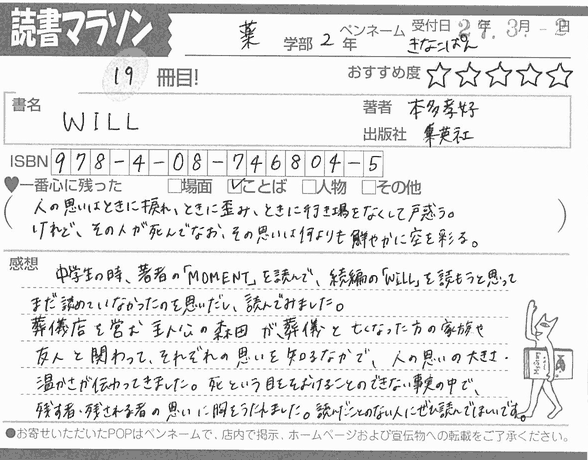 読書マラソン
薬 学部 2 年 ペンネーム きなこぱん 受付日 27.3月-2日
19 冊目! おすすめ度 ☆☆☆☆☆
書名 WILL 著者 本多孝好
出版社 集英社
ISBN 978-4-08-746804-5
♥一番心に残った □場面 ☑ことば □人物 □その他
人の思いはときに捩れ、ときに歪み、ときに行き場をなくして戸惑う。
けれど、その人が死んでなお、その思いは何よりも鮮やかに空を彩る。
感想
中学生の時、著者の「MOMENT」を読んで、続編の「WILL」を読もうと思って
まだ読めていなかったのを思いだし、読んでみました。
葬儀店を営む主人公の森田が、葬儀と亡くなった方の家族や
友人と関わって、それぞれの思いを知るなかで、人の思いの大きさ・
温かさが伝わってきました。死という目をそむけることのできない事実の中で、
残す者・残される者の思いに胸をうたれました。読んだことのない人にぜひ読んでほしいです。
●お寄せいただいたPOPはペンネームで、店内で掲示、ホームページおよび宣伝物への転載をご了承ください。